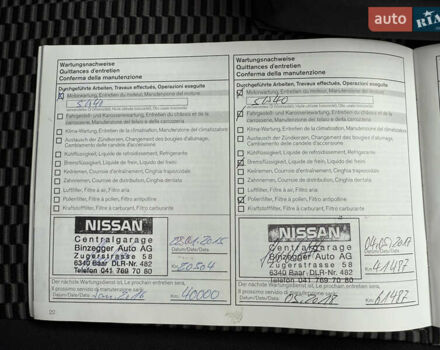 auto
RIA
Wartungsnachweise
Quittances d'entretien
Conferma della manutenzione
Durchgeführte Arbeiten, Travaux effectués, Operazioni eseguite
Motorwartung, Entretien du moteur, Manutenzione del motore
5W40
Fahrgestell- und Karosseriewartung, Entretien du châssis et de la carrosserie, Manutenzione del telaio e della carrozzeria
Klima-Wartung, Entretien de la climatisation, Manutenzione del climatizzatore
Austausch der Zündkerzen, Changement des bougies d'allumage,
Cambiamento delle candele d'accensione
Kühlflüssigkeit, Liquide de refroidissement, Refrigerante
Bremsflüssigkeit, Liquide de frein, Liquido dei freni
Keilriemen, Courroie d'entraînement, Cinghia trapezoidale
Zahnriemen, Courroie de distribution, Cinghia dentata
Luftfilter, Filtre à air, Filtro aria
Pollenfilter, Filtre à pollen, Filtro antipolline
Kraftstofffilter, Filtre à carburant, Filtro carburante
NISSAN
Centralgarage
Binzegger Auto AG
Zugerstrasse 58
6340 Baar DLR-Nr. 482
Telefon 041 769 70 80
Datum/Date/Data
Km 20504
Der nächste Wartungsdienst ist, Le prochain entretien sera,
Il prossimo servizio di manutenzione sarà:
Datum/Date/Data
Km 40000
20
Wartungsnachweise
Quittances d'entretien
Conferma della manutenzione
Durchgeführte Arbeiten, Travaux effectués, Operazioni eseguite
Motorwartung, Entretien du moteur, Manutenzione del motore
5W40
Fahrgestell- und Karosseriewartung, Entretien du châssis et de la
carrosserie, Manutenzione del telaio e della carrozzeria
Klima-Wartung, Entretien de la climatisation, Manutenzione del climatizzatore
Austausch der Zündkerzen, Changement des bougies d'allumage,
Cambiamento delle candele d'accensione
Kühlflüssigkeit, Liquide de refroidissement, Refrigerante
Bremsflüssigkeit, Liquide de frein, Liquido dei freni
Keilriemen, Courroie d'entraînement, Cinghia trapezoidale
Zahnriemen, Courroie de distribution, Cinghia dentata
Luftfilter, Filtre à air, Filtro aria
Pollenfilter, Filtre à pollen, Filtro antipolline
Kraftstofffilter, Filtre à carburant, Filtro carburante
NISSAN
Centralgarage
Binzegger Auto AG
Zugerstrasse 58
6340 Baar DLR-Nr. 482
Telefon 041 769 70 80
04.05.2017
Datum/Date/Data
Km 41487
Der nächste Wartungsdienst ist, Le prochain entretien sera,
Il prossimo servizio di manutenzione sarà:
Datum/Date/Data
Km 61487